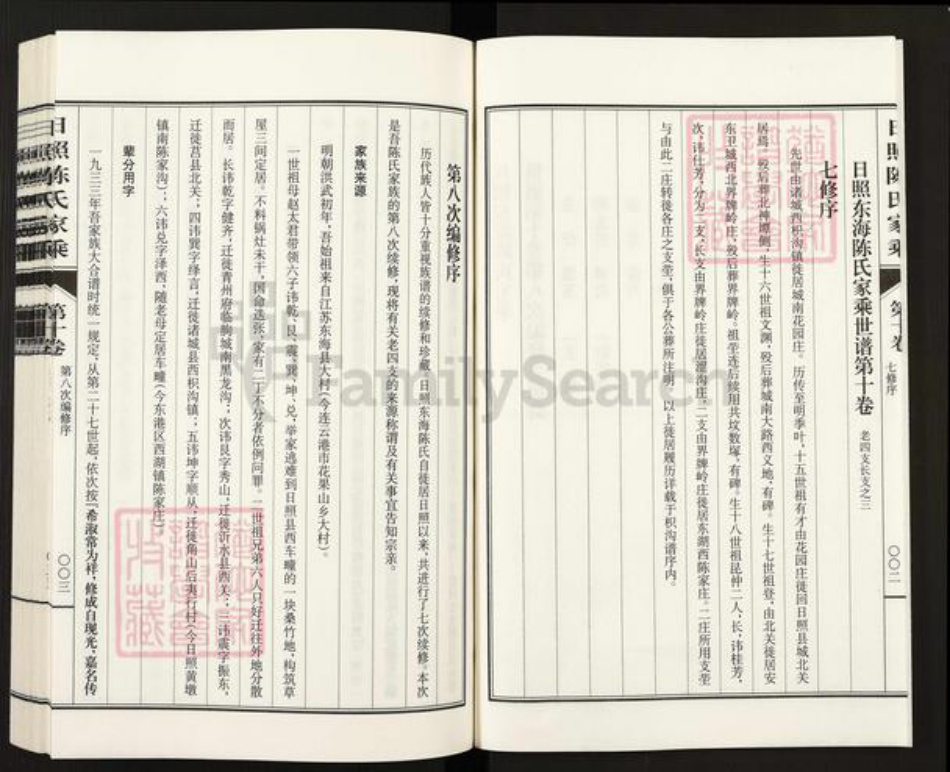 日照陈氏家乘
七修序
〇〇二
日照东海陈氏家乘世谱第十卷
老四支长支之三
七修序
先世由诸城西枳沟镇徙居城南花园庄。历传至明季叶,十五世祖有才由花园庄徙回日照县城北关
居焉。殁后葬北神坛侧,生十六世祖文渊,殁后葬城南大路西义地,有碑。生十七世祖登,由北关徙居安
东卫城西北界牌岭庄,殁后葬界牌岭。祖茔连后续用共坟数塚,有碑。生十八世祖昆仲二人,长,讳桂芳,
次,讳仕芳,分为二支,长支由界牌岭庄徙居涩沟庄。二支由界牌岭庄徙居东湖西陈家庄。二庄所用支茔
与由此二庄转徙各庄之支茔,俱于各公葬所注明,以上徙居履历详载于枳沟谱序内。
第八次编修序
历代族人皆十分重视族谱的续修和珍藏。日照东海陈氏自徙居日照以来,共进行了七次续修。本次
是吾陈氏家族的第八次续修,现将有关老四支的来源称谓及有关事宜告知宗亲。
家族来源
明朝洪武初年,吾始祖来自江苏东海县大村(今连云港市花果山乡大村)。
一世祖母赵太君带领六子讳乾、艮、震、巽、坤、兑,举家逃难到日照县西车疃的一块桑竹地,构筑草
屋三间定居。不料锅灶未干,因命迭张,家有二丁不分者依例问罪。二世祖兄弟六人只好迁往外地分散
而居。长讳乾字健斋,迁徙青州府临朐城南黑龙沟;次讳艮字秀山,迁徙沂水县西关;三讳震字振东,
迁徙莒县北关;四讳巽字绎言,迁徙诸城县西枳沟镇;五讳坤字顺从,迁徙角山后夷行村(今日照黄墩
镇南陈家沟);六讳兑字泽西,随老母定居车疃(今东港区西湖镇陈家庄)。
辈分用字
一九三三年吾家族大合谱时统一规定,从第二十七世起,依次按『希淑常为祥,修成自现光,嘉名传
日照陈氏家乘
第十卷
第八次编修序
〇〇三
FamilySearch